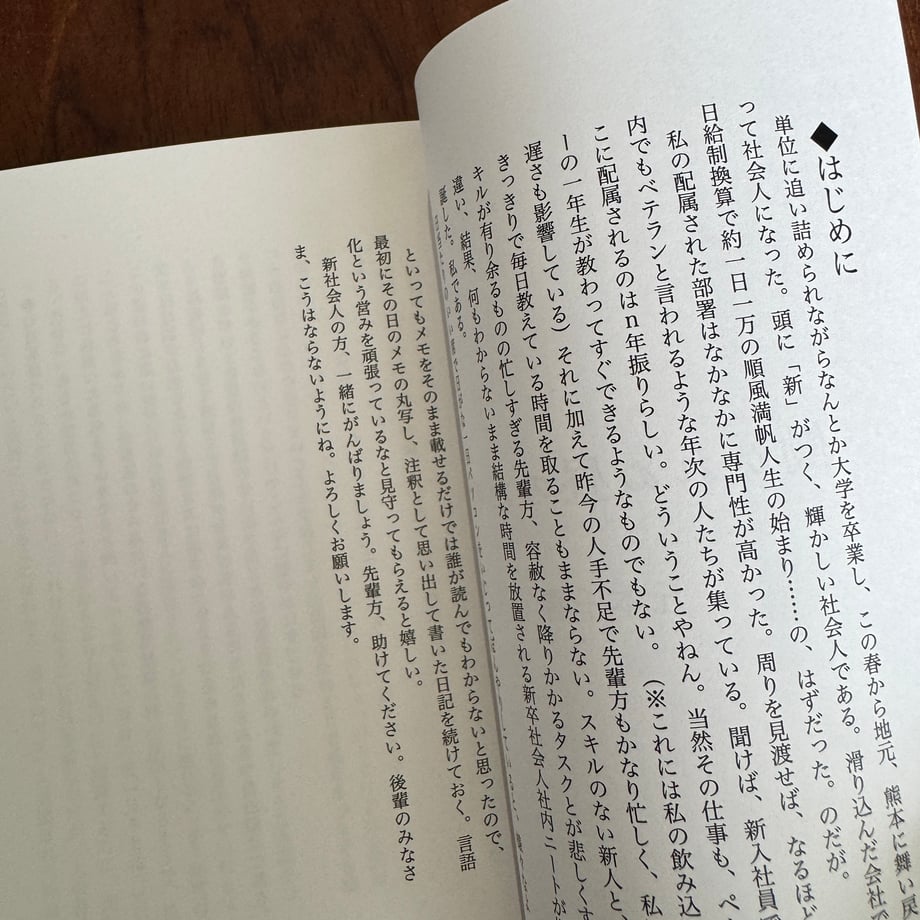 ◆はじめに
単位に追い詰められながらなんとか大学を卒業し、この春から地元、熊本に舞い戻
って社会人になった。頭に「新」がつく、輝かしい社会人である。滑り込んだ会社で
日給制換算で約一日一万の順風満帆人生の始まり……の、はずだった。のだが。
私の配属された部署はなかなかに専門性が高かった。周りを見渡せば、なるほど
内でもベテランと言われるような年次の人たちが集っている。聞けば、新入社員
こに配属されるのはn年振りらしい。どういうことやねん。当然その仕事も、ペ
ーの一年生が教わってすぐできるようなものでもない。（※これには私の飲み込
遅さも影響している）それに加えて昨今の人手不足で先輩方もかなり忙しく、私
きっきりで毎日教えている時間を取ることもままならない。スキルのない新人と、
キルが有り余るものの忙しすぎる先輩方、容赦なく降りかかるタスクとが悲しくす
違い、結果、何もわからないまま結構な時間を放置される新卒社会人社内ニートが
誕した。私である。
といってもメモをそのまま載せるだけでは誰が読んでもわからないと思ったので、
最初にその日のメモの丸写し、注釈として思い出して書いた日記を続けておく。言語
化という営みを頑張っているなと見守ってもらえると嬉しい。
新社会人の方、一緒にがんばりましょう。先輩方、助けてください。後輩のみなさ
ま、こうはならないようにね。よろしくお願いします。